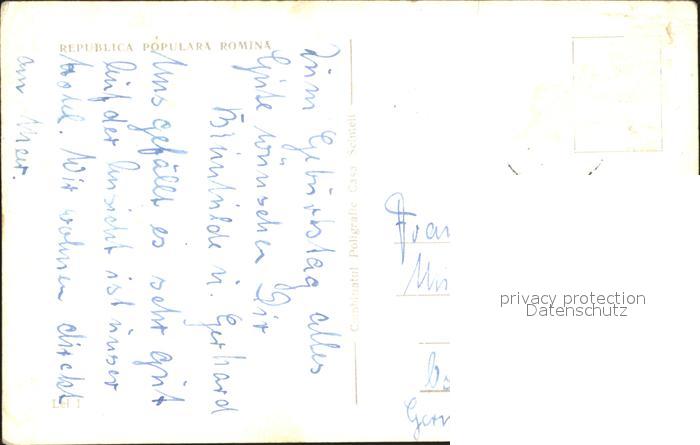 REPUBLICA POPULARA ROMINA
Zum Geburtstag alles
Gute wünschen Dir
Brunhilde u. Gerhard
Uns gefällt es sehr gut
Auf der Ansicht ist unser
Hotel. Wir wohnen direkt
am Meer.
Lei 1
Combinatul Poligrafic Casa Scînteii
Frau
privacy protection
Datenschutz